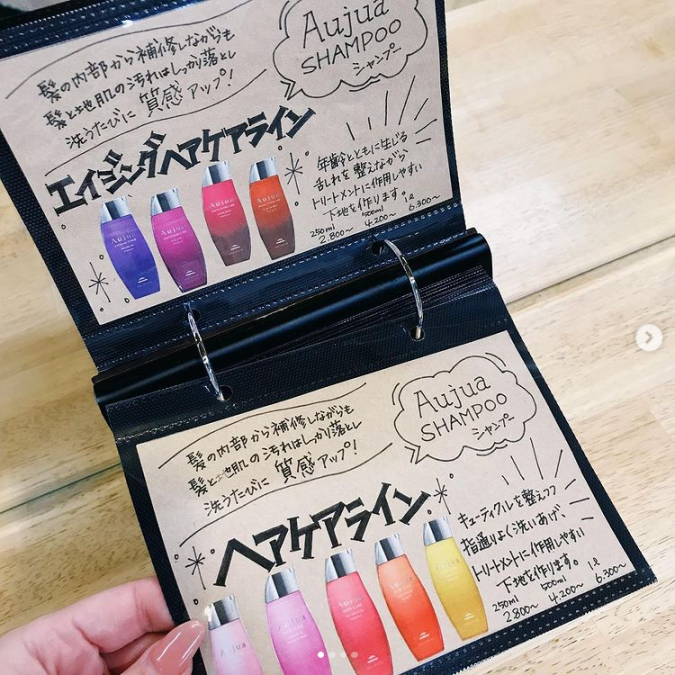 髪の内部から補修しながらも
髪と地肌の汚れはしっかり落とし
洗うたびに 質感アップ!
Aujua
SHAMPOO
シャンプー
エイジングヘアケアライン
年齢とともに生じる
乱れを整えながら
トリートメントに作用しやすい
下地を作ります。
250ml 500ml 1ℓ
2.800〜 4.200〜 6.300〜
Aujua
Aujua
Aujua
Aujua
髪の内部から補修しながらも
髪と地肌の汚れはしっかり落とし
洗うたびに 質感アップ!
Aujua
SHAMPOO
シャンプー
ヘアケアライン
キューティクルを整えつつ
指通りよく洗いあげ、
トリートメントに作用しやすい
下地を作ります。
250ml 500ml 1ℓ
2.800〜 4.200〜 6.300〜
Aujua
Aujua
Aujua
Aujua
Aujua